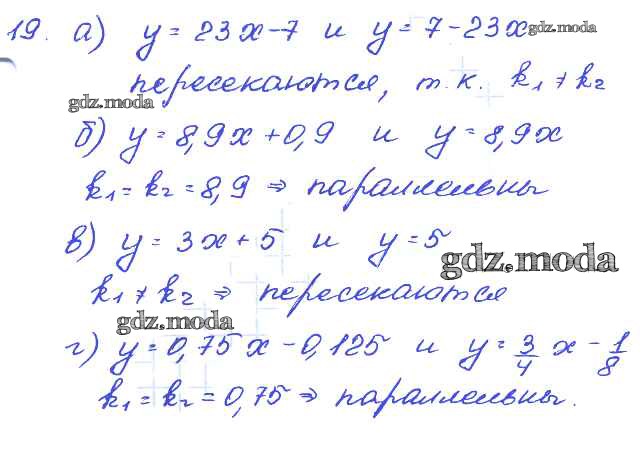 19. а) y = 23x - 7 и y = 7 - 23x
gdz.moda
пересекаются, т.к. k₁ ≠ k₂
gdz.moda
б) y = 8,9x + 0,9 и y = 8,9x
k₁ = k₂ = 8,9 ⇒ параллельны
в) y = 3x + 5 и y = 5
gdz.moda
k₁ ≠ k₂ ⇒ пересекаются
gdz.moda
г) y = 0,75x - 0,125 и y = 3/4 x - 1/8
k₁ = k₂ = 0,75 ⇒ параллельны.